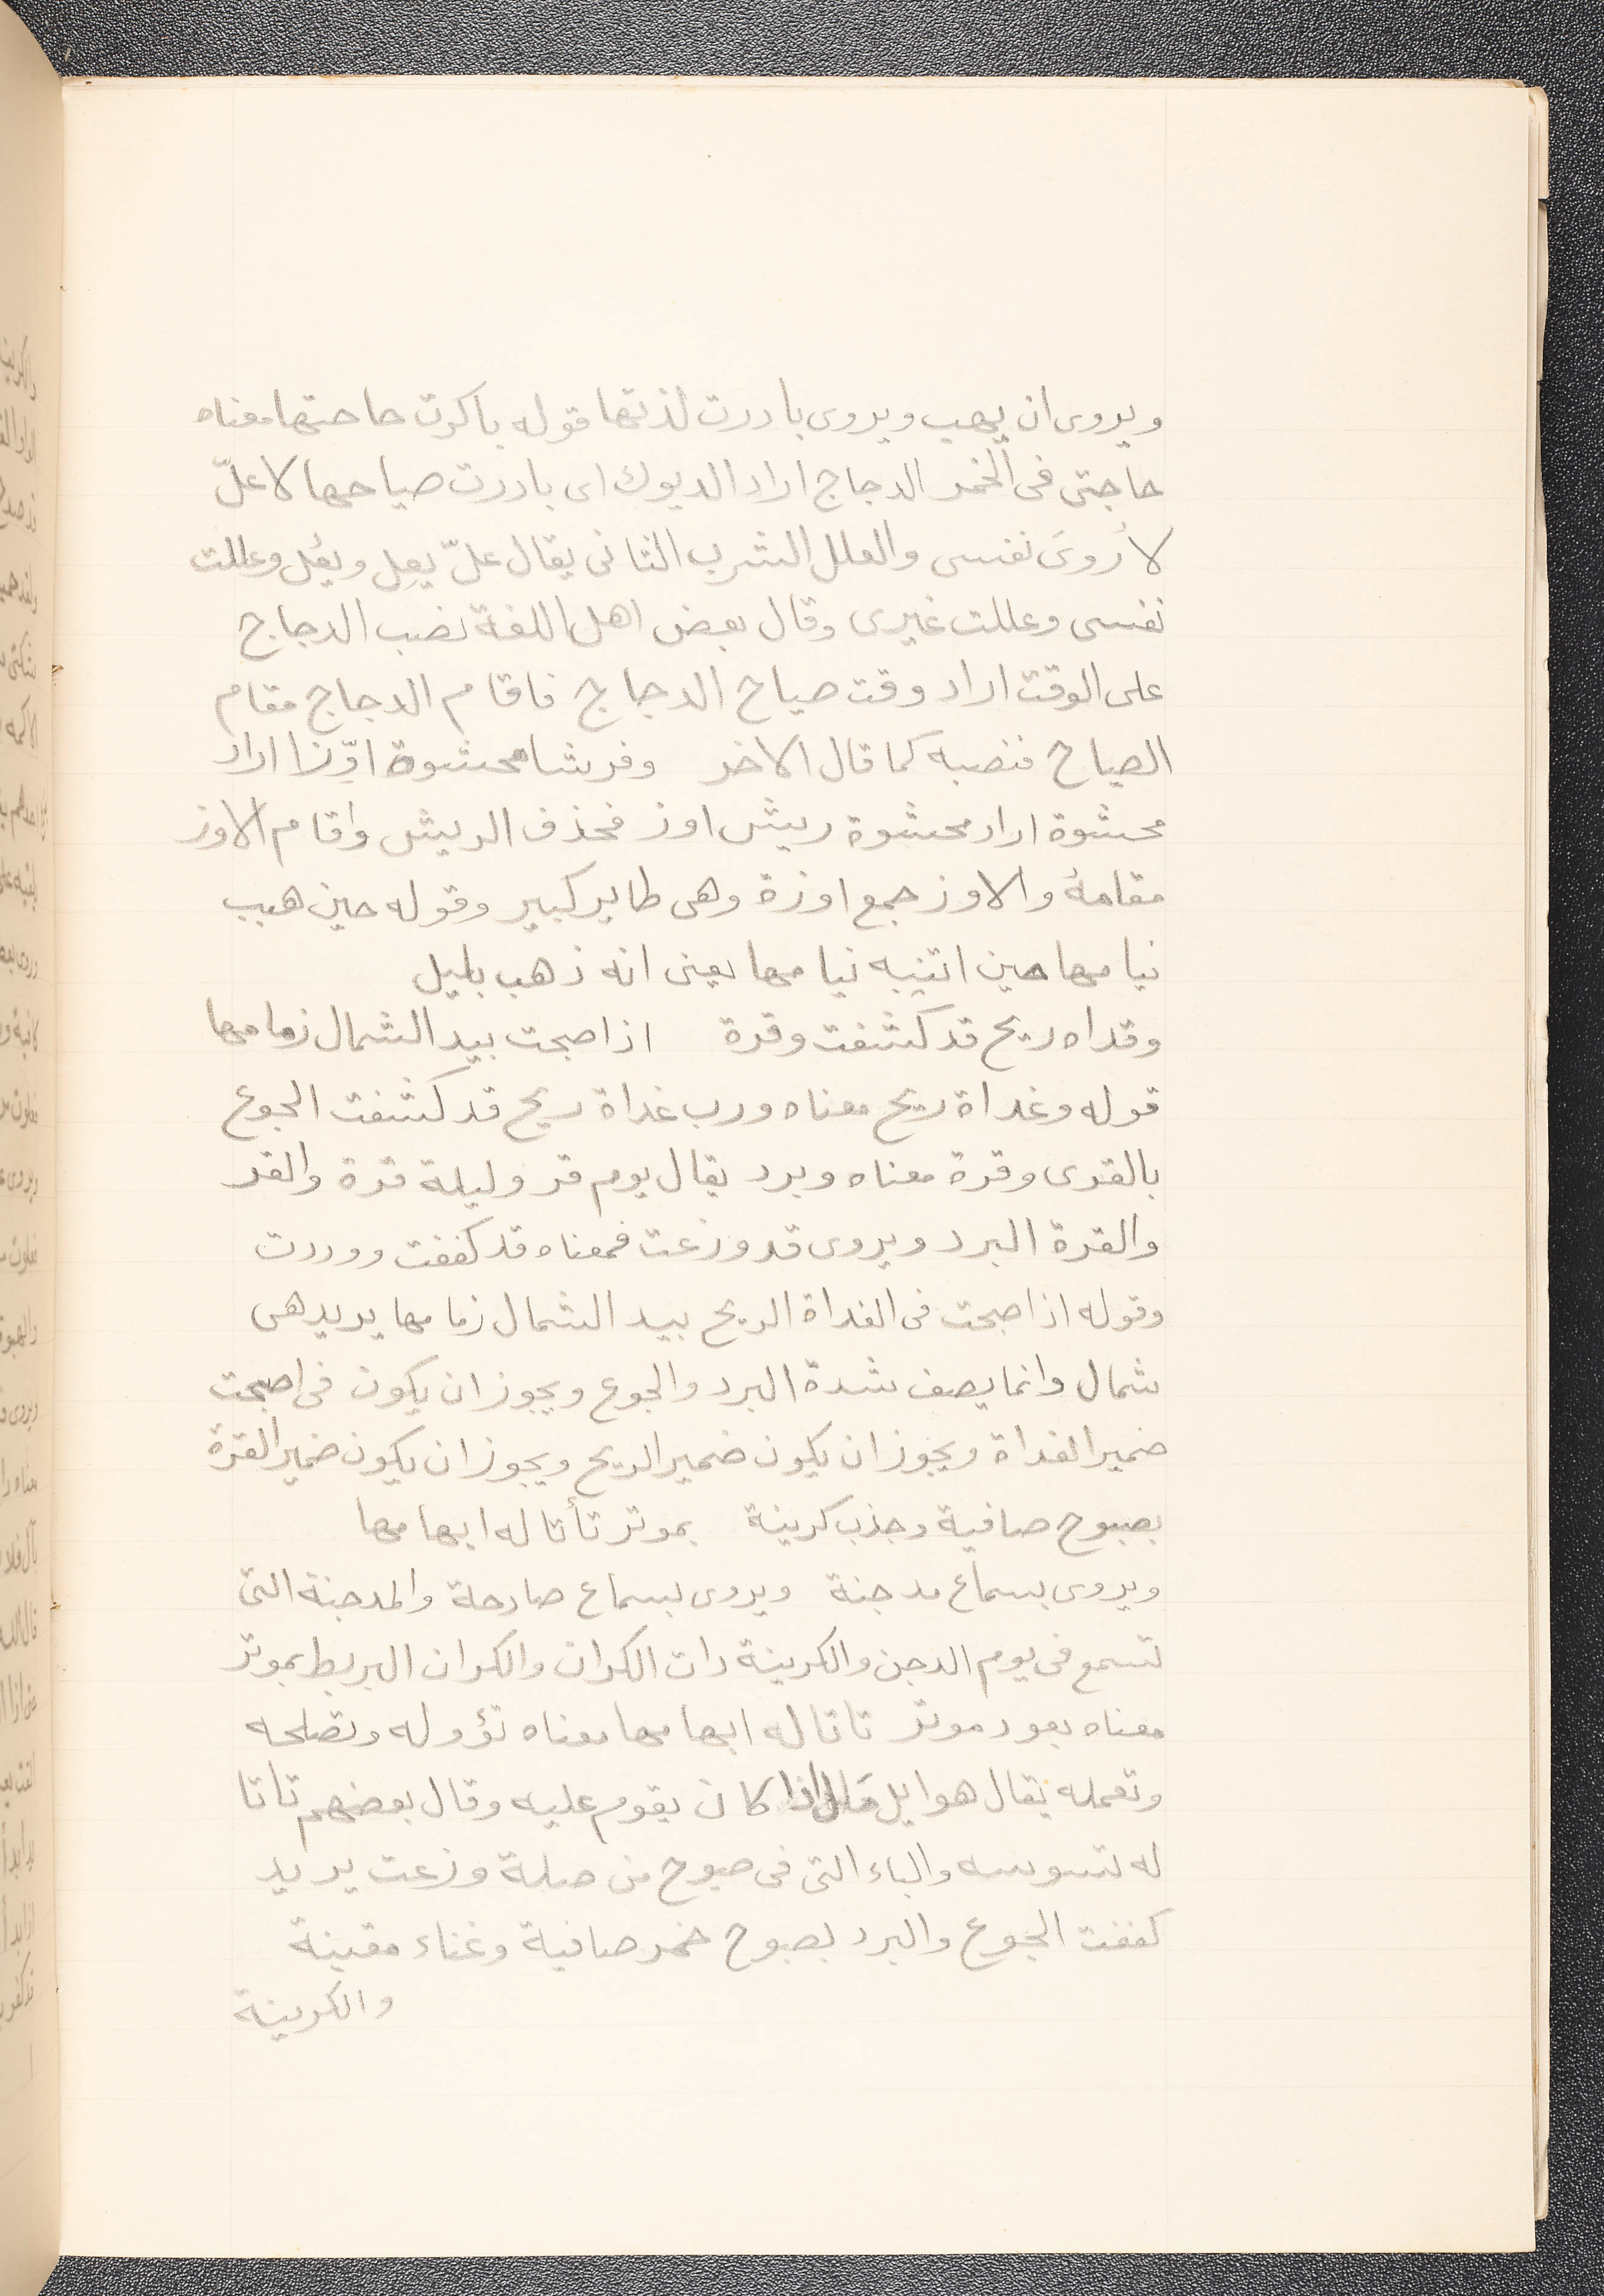 ويروى ان يهب ويروى بادرت لذتها قوله باكرت حاجتها معناه
حاجتى فى الخمر الدجاج اراد الديوك اى بادرت صياحها لاعلّ
لاُروىَ نفسى والعلل الشرب الثانى يقال علّ يعل ويعُل وعللت
نفسى وعللت غيرى وقال بعض اهل اللغة نصب الدجاج
على الوقت اراد وقت صياح الدجاج فاقام الدجاج مقام
الصياح فنصبه كما قال الاخر وفرشا محشوة اوّزا اراد
محشوة اراد محشوة ريش اوز فحذف الريش واقام الاوز
مقامهُ والاوز جمع اوزة وهى طاير كبير وقوله حين هبب
نيامها حين انتبه نيامها يعنى انه ذهب بليل
وقداه ريح قد كشفت وقرة اذا صبحت بيد الشمال زمامها
قوله وغداة ريح معناه ورب غداة ريح قد كشفت الجوع
بالقرى وقرة معناه وبرد يقال يوم قر وليلة قرة والقر
والقرة البرد ويروى قد وزعت فمعناه قد كففت ووردت
وقوله اذا صبحت فى الغداة الريح بيد الشمال زمامها يريد هى
شمال وانما يصف شدة البرد والجوع ويجوز ان يكون فى اصبحت
ضمير الغداة ويجوز ان يكون ضمير الريح ويجوز ان يكون ضمير القرة
بصبوح صافية وجذب كرينة بموتر تأتا له ابهامها
ويروى بسماع مدجنة ويروى بسماع صادحة والمدجنة التى
تسمع فى يوم الدجن والكرينة ذات الكران والكران البربط بموتر
معناه بعود موتر تاتا له ابهامها معناه تؤوله وتصلحه
وتعمله يقال هو ايل مَال اذا كان يقوم عليه وقال بعضهم تاتا
له تسوسه والباء التى فى صبوح من صلة وزعت يريد
كففت الجوع والبرد بصبوح خمر صافية وغناء مقينة
والكرينة